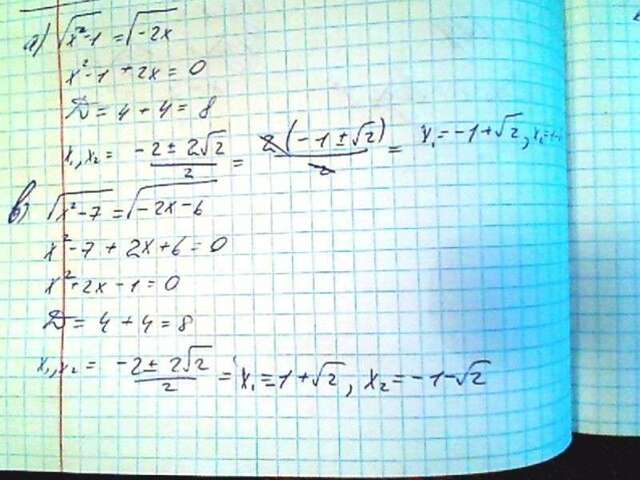 а) √x²-1 = √-2x
x²-1 + 2x = 0
D = 4 + 4 = 8
x₁, x₂ = -2 ± 2√2 / 2 = 2(-1 ± √2) / 2 = x₁ = -1 + √2, x₂ = -1-
в) √x²-7 = √-2x-6
x²-7 + 2x + 6 = 0
x²+2x-1 = 0
D = 4 + 4 = 8
x₁, x₂ = -2 ± 2√2 / 2 = x₁ = 1 + √2, x₂ = -1-√2